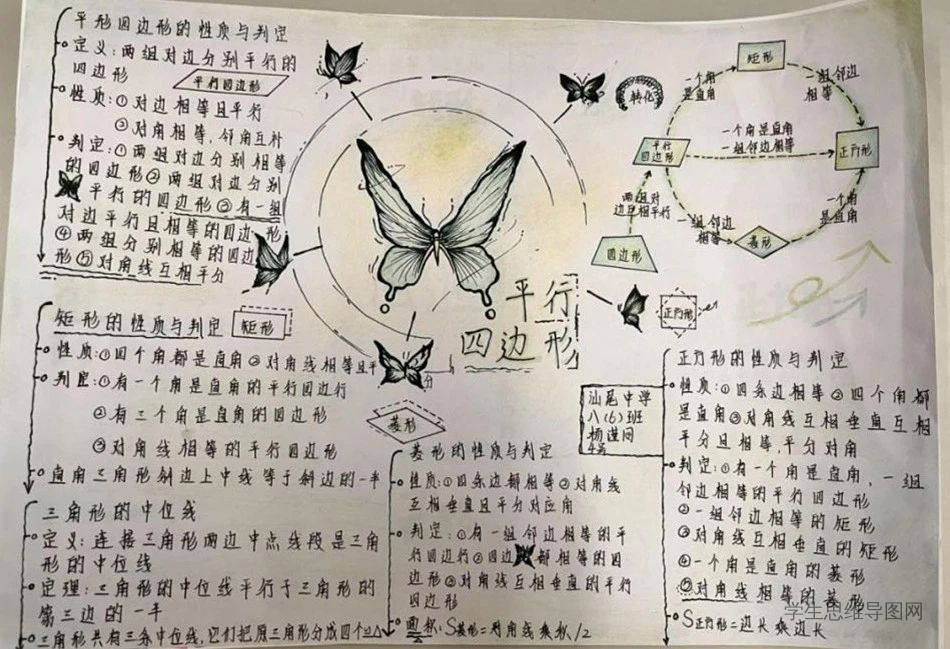 平形四边形的性质与判定
定义:两组对边分别平行的
四边形
平行四边形
性质:①对边相等且平行
②对角相等,邻角互补
判定:①两组对边分别相等
的四边形②两组对边分别
平行的四边形③有一组
对边平行且相等的四边形
④两组分别相等的四边
形⑤对角线互相平分
转化
矩形
一个角
是直角
一组邻边
相等
平行
四边形
一个角是直角
一组邻边相等
正方形
两组对
边互相平行
一组邻边
相等
一个角
是直角
四边形
菱形
平行
四边形
正方形
矩形的性质与判定
矩形
性质:①四个角都是直角②对角线相等且平
分
判定:①有一个角是直角的平行四边行
②有三个角是直角的四边形
③对角线相等的平行四边形
直角三角形斜边上中线等于斜边的一半
三角形的中位线
定义:连接三角形两边中点线段是三角
形的中位线
定理:三角形的中位线平行于三角形的
第三边的一半
三角形共有三条中位线,它们把原三角形分成四个
菱形
菱形的性质与判定
性质:①四条边都相等②对角线
互相垂直且平分对应角
判定:①有一组邻边相等的平
行四边行②四边都相等的四
边形③对角线互相垂直的平行
四边形
面积:S菱形=对角线乘积/2
汕尾中学
八(6)班
4号
正方形的性质与判定
性质:①四条边相等②四个角都
是直角③对角线互相垂直互相
平分且相等,平分对角
判定:①有一个角是直角,一组
邻边相等的平行四边形
②一组邻边相等的矩形
③对角线互相垂直的矩形
④一个角是直角的菱形
⑤对角线相等的菱形
S正方形=边长乘边长
学生思维导图网